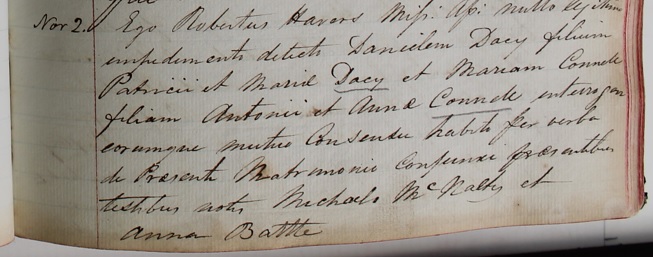 Nov 2. Ego Robertus Havers Miss: Ap: nullo legitimo
impedimento detecto Danielem Dacy filium
Patricii et Mariæ Dacy et Mariam Connele
filiam Antonii et Annæ Connele interrogavi
eorumque mutuo Consensu habito per verba
de Præsenti Matrimonio Conjunxi præsentibus
testibus notis Michaele McNalty et
Anna Battle